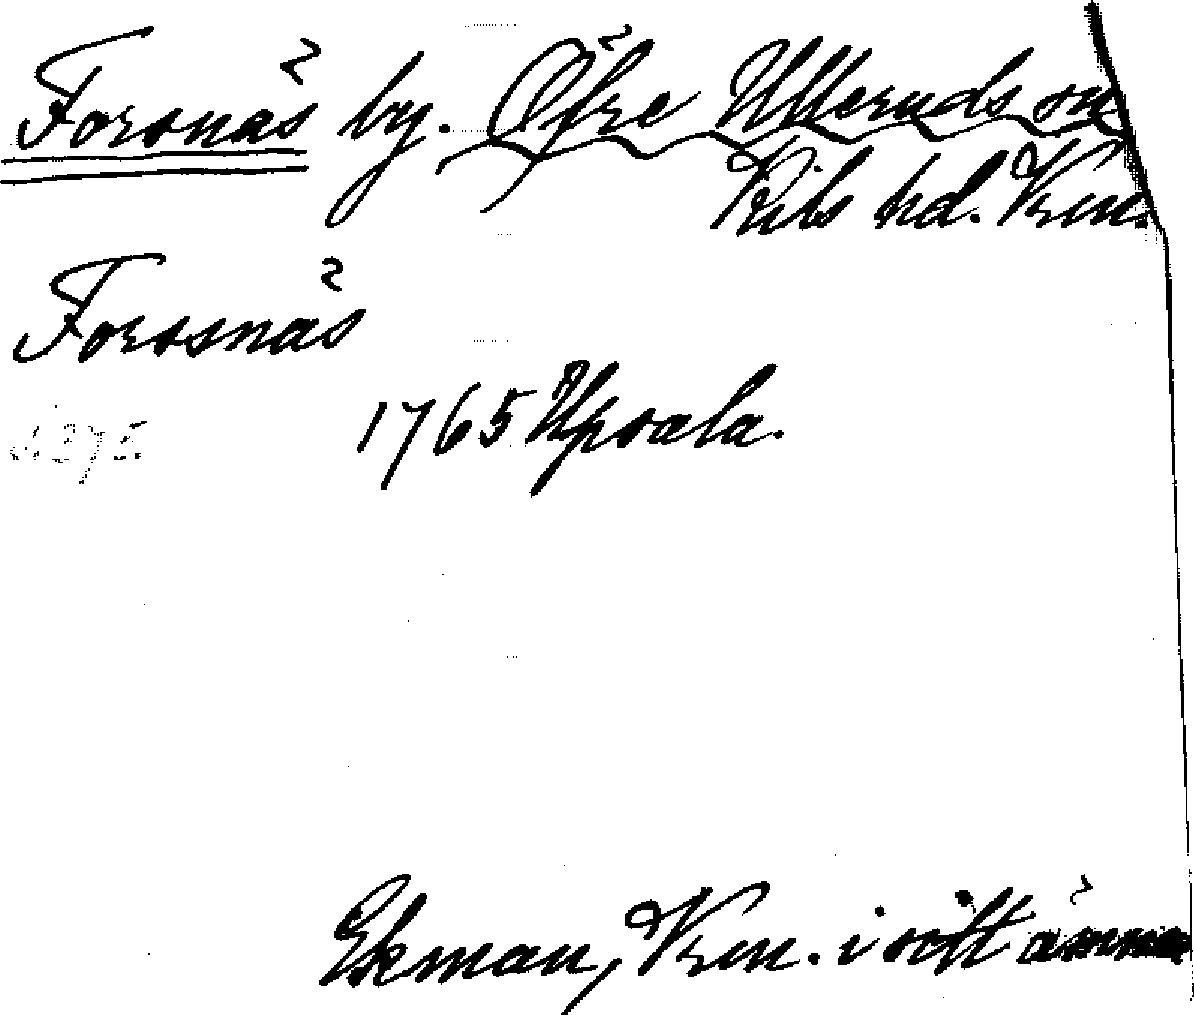 Forsnäs by. Öfre Ulleruds sn
Kils hd. Vrm.
Forssnäs
1765 Upsala.
Ekman, Vrm. i sitt ämne